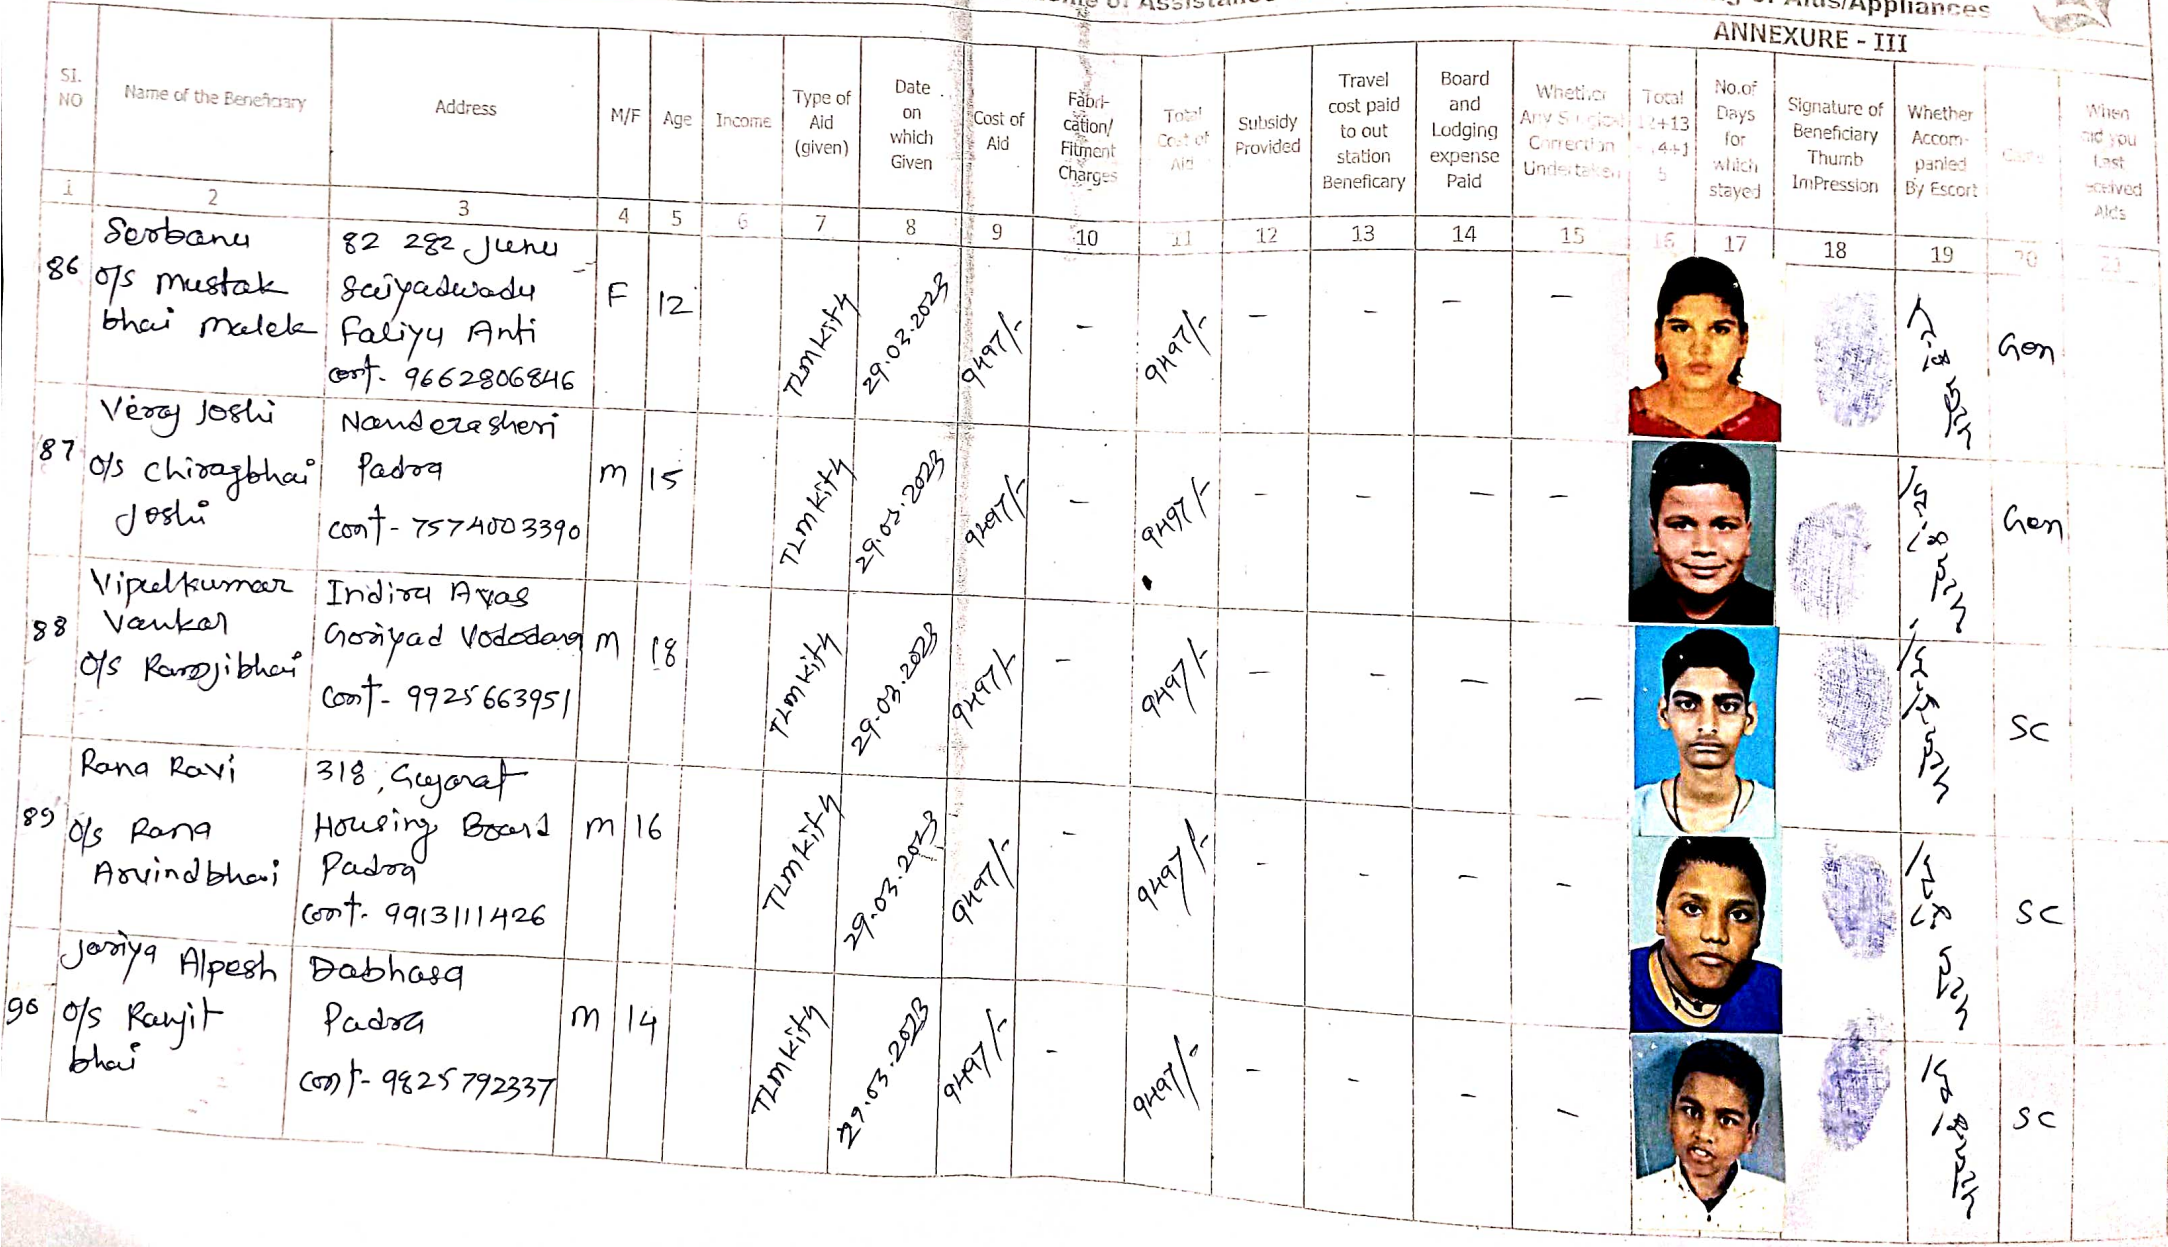 of Assistance
Aids/Appliances
ANNEXURE - III
SI. NO
Name of the Beneficiary
Address
M/F
Age
Income
Type of Aid (given)
Date on which Given
Cost of Aid
Fabri-cation/ Fitment Charges
Total Cost of Aid
Subsidy Provided
Travel cost paid to out station Beneficary
Board and Lodging expense Paid
Whether Any Surgical Correction Undertaken
Total
No.of Days for which stayed
Signature of Beneficiary Thumb ImPression
Whether Accom-panied By Escort
When did you Last received Aids
1 2 3 4 5 6 7 8 9 10 11 12 13 14 15 16 17 18 19 20 21
86
Serbanu
o/s Mustak
bhai Malek
82 282 Junu
Saiyadwadu
Faliyu Anti
cont- 9662806846
F 12 TLM kity 29.03.2023 9497/- - 9497/- - - - - Gen
87
Veraj Joshi
o/s Chiragbhai
Joshi
Nanderasheri
Padra
cont- 7574003390
M 15 TLM kity 29.03.2023 9497/- - 9497/- - - - - Gen
88
Vipulkumar
Vankar
o/s Ramjibhai
Indira Avas
Goriyad Vododara
cont- 9925663951
M 18 TLM kity 29.03.2023 9497/- - 9497/- - - - - SC
89
Rana Ravi
o/s Rana
Arvindbhai
318, Gujarat
Housing Board
Padra
cont- 9913111426
M 16 TLM kity 29.03.2023 9497/- - 9497/- - - - - SC
90
Jariya Alpesh
o/s Ranjit
bhai
Dabhasa
Padra
cont- 9825792337
M 14 TLM kity 29.03.2023 9497/- - 9497/- - - - - SC